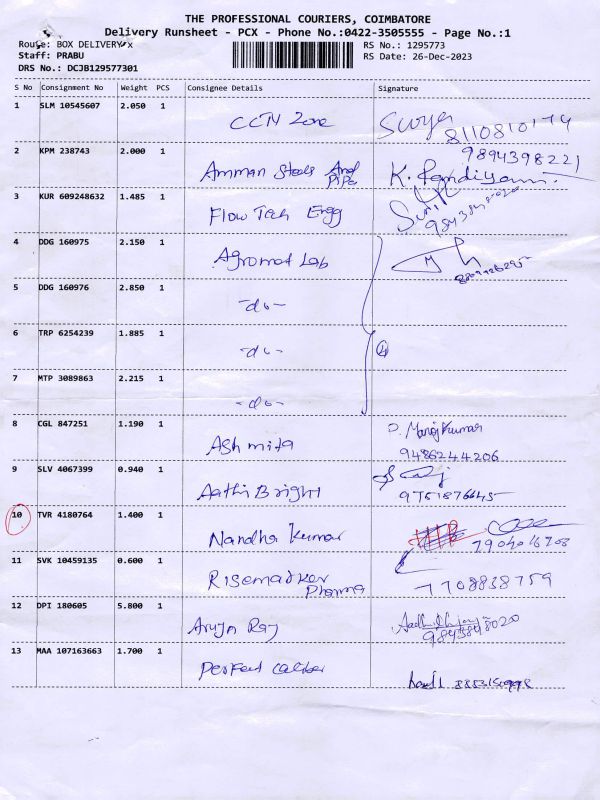 THE PROFESSIONAL COURIERS, COIMBATORE
Delivery Runsheet - PCX - Phone No.:0422-3505555 - Page No.:1
Route: BOX DELIVERY x
RS No.: 1295773
Staff: PRABU
RS Date: 26-Dec-2023
DRS No.: DCJB129577301
S No Consignment No Weight PCS Consignee Details Signature
1 SLM 10545607 2.050 1
CCTV Zone Surya 8110810174
2 KPM 238743 2.000 1
Amman Steels And Pipe K. Pandiyan 9894398221
3 KUR 609248632 1.485 1
Flow Tech Engg
4 DDG 160975 2.150 1
Agromat Lab
5 DDG 160976 2.850 1
-do-
6 TRP 6254239 1.885 1
-do- 4
7 MTP 3089863 2.215 1
-do-
8 CGL 847251 1.190 1
Ashmita D. Manoj Kumar
9486244206
9 SLV 4067399 0.940 1
Aathi Bright 9751876645
10 TVR 4180764 1.400 1
Nandha Kumar
11 SVK 10459135 0.600 1
Risemarker Pharma 7708838759
12 DPI 180605 5.800 1
Arujn Raj 9843848020
13 MAA 107163663 1.700 1
Perfect caliber